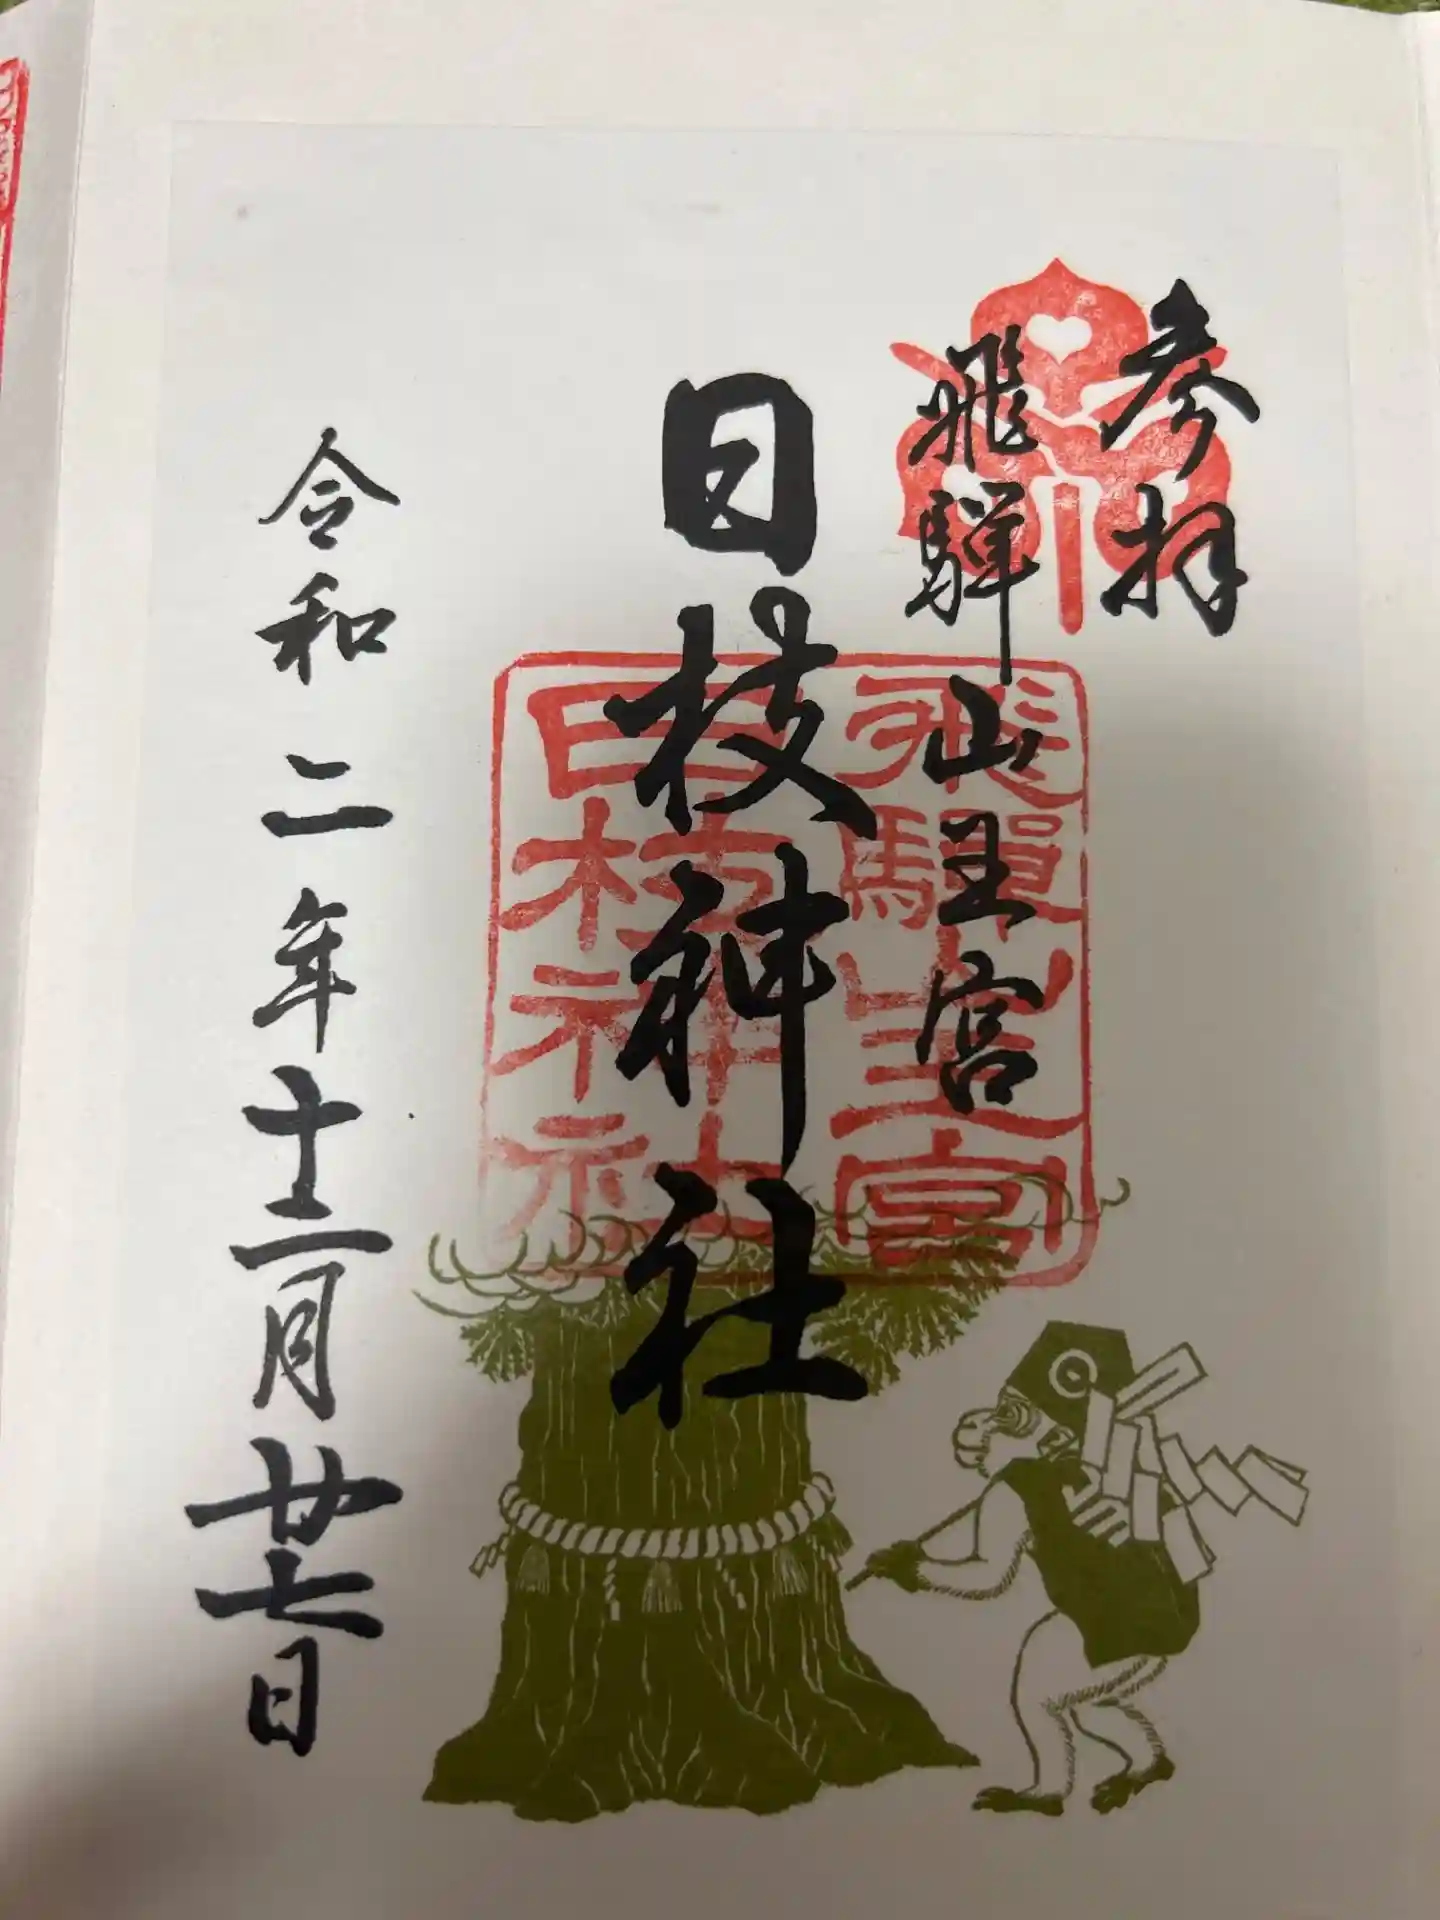 参拝
飛騨山王宮
日枝神社
飛騨山王宮
日枝神社
令和二年十二月廿七日